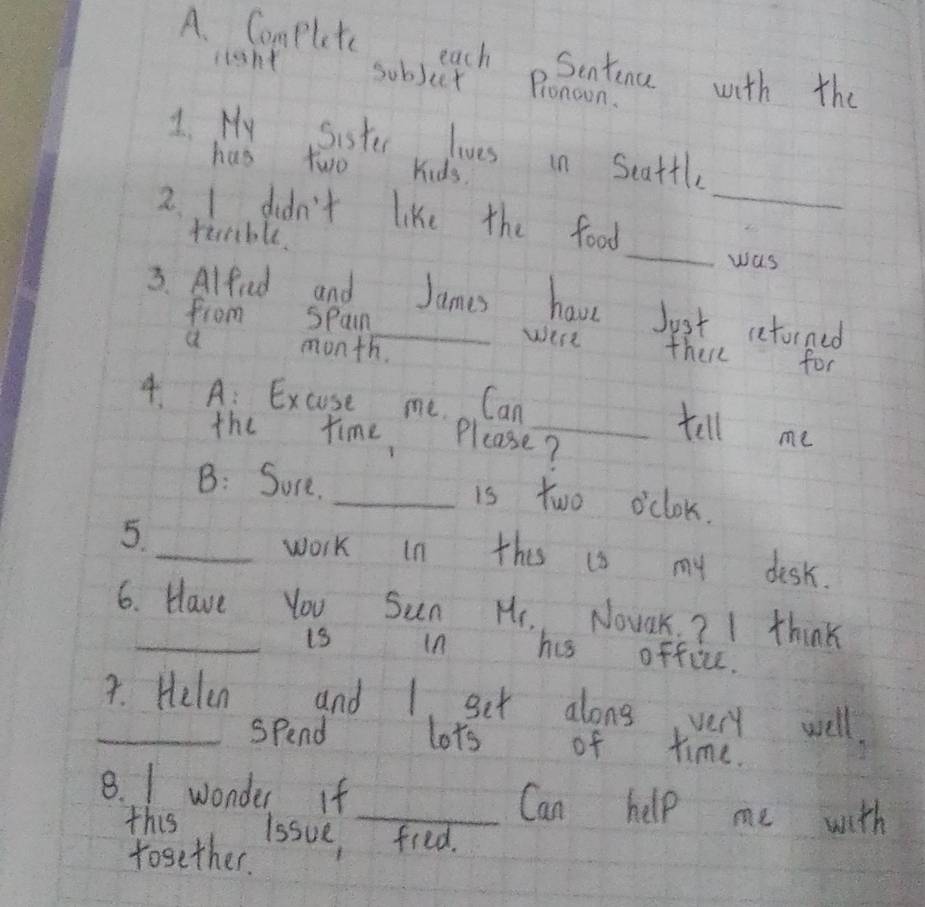 A. Complete each Sentence with the
right subject Pronoun.
1. My Sister lives in Seattle ______
has two Kids.
2. I didn't like the food ______ was
terrible.
3. Alfred and James have Just returned
from Spain ______ were there for
a month.
4. A: Excuse me. Can ______ tell me
the time, Please?
B: Sure. ______ is two o'clok.
5. ______ work in this is my desk.
6. Have You Seen Mr. Novak.? I think
______ is in his office.
7. Helen and I get along very well,
______ spend lots of time.
8. I wonder if ______ Can help me with
this Issue, fred.
together.